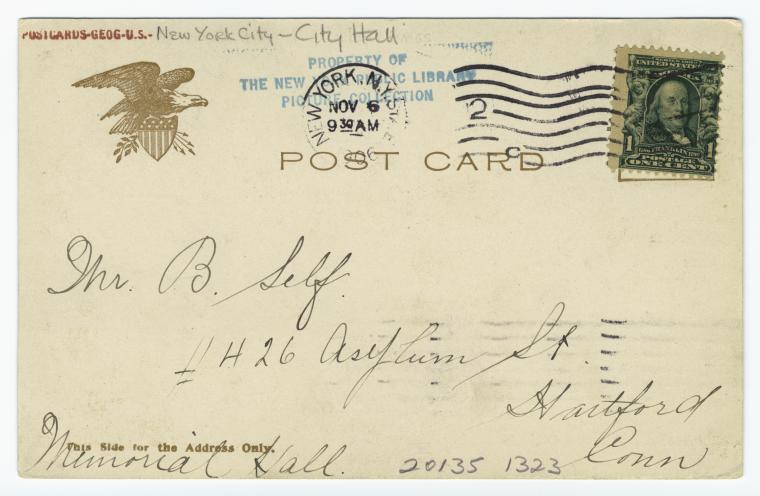 POSTCARDS-GEOG-U.S.- New York City - City Hall
PROPERTY OF
THE NEW YORK PUBLIC LIBRARY
PICTURE COLLECTION
NEW YORK, N.Y.
NOV 6
9 30 AM
'06
2
POST CARD
UNITED STATES
1 FRANKLIN 1
POSTAGE
ONE CENT
Mr. B. Self.
# 426 Asylum St.
Hartford
Conn
This Side for the Address Only.
Memorial Hall.
20135 1323